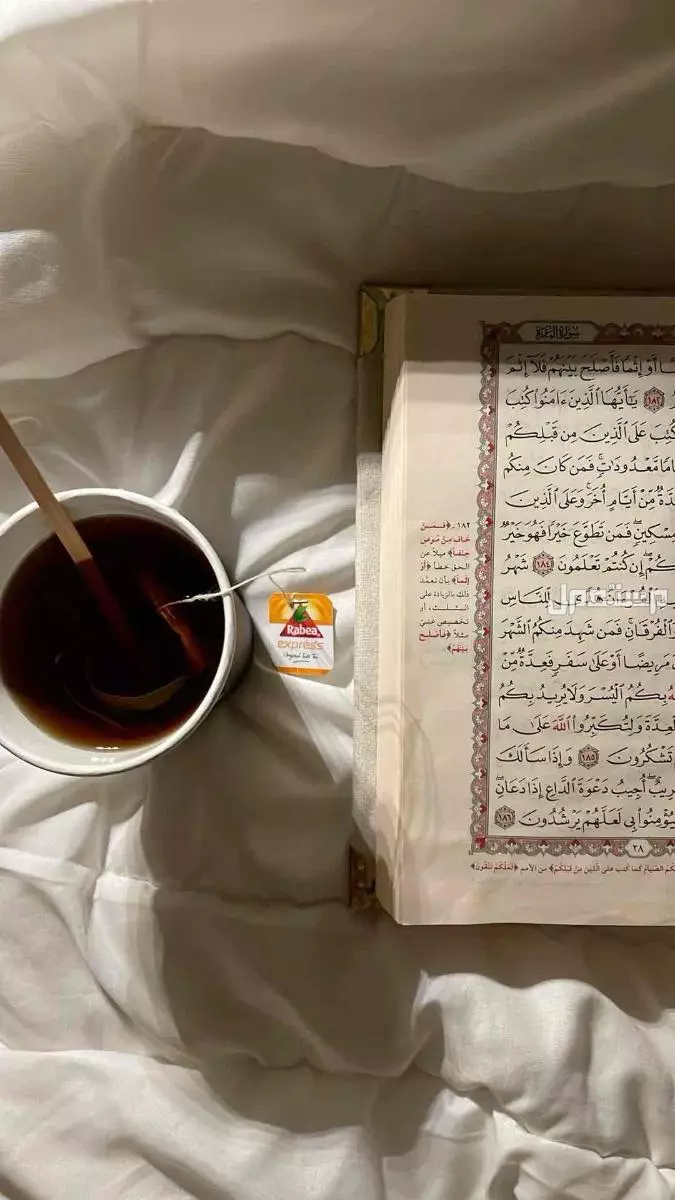 Rabea
express
سُورَةُ البَقَرَةِ
أَوْ إِثْمًا فَأَصْلَحَ بَيْنَهُمْ فَلَآ إِثْمَ
١٨٢ يَٰٓأَيُّهَا ٱلَّذِينَ ءَامَنُوا۟ كُتِبَ
كُتِبَ عَلَى ٱلَّذِينَ مِن قَبْلِكُمْ
مَّعْدُودَٰتٍ ۚ فَمَن كَانَ مِنكُم
مِّنْ أَيَّامٍ أُخَرَ ۚ وَعَلَى ٱلَّذِينَ
مِسْكِينٍ ۖ فَمَن تَطَوَّعَ خَيْرًا فَهُوَ خَيْرٌ
إِن كُنتُمْ تَعْلَمُونَ ١٨٤ شَهْرُ
لِّلنَّاسِ
وَٱلْفُرْقَانِ ۚ فَمَن شَهِدَ مِنكُمُ ٱلشَّهْرَ
مَرِيضًا أَوْ عَلَىٰ سَفَرٍ فَعِدَّةٌ مِّنْ
بِكُمُ ٱلْيُسْرَ وَلَا يُرِيدُ بِكُمُ
وَلِتُكَبِّرُوا۟ ٱللَّهَ عَلَىٰ مَا
تَشْكُرُونَ ١٨٥ وَإِذَا سَأَلَكَ
أُجِيبُ دَعْوَةَ ٱلدَّاعِ إِذَا دَعَانِ ۖ
بِى لَعَلَّهُمْ يَرْشُدُونَ ١٨٦
٢٨
١٨٢ـ ﴿فَمَنْ
خَافَ مِنْ مُوصٍ
جَنَفًا﴾ ميلًا عن
الحق خطأ ﴿أَوْ
إِثْمًا﴾ بأن تعمَّد
ذلك بالزيادة على
الثلث، أو
تخصيص غنيّ
مثلًا ﴿فَأَصْلَحَ
بَيْنَهُمْ﴾
الصيام كما كتب على الذين من قبلكم﴾ من الأمم ﴿لعلكم تتقون﴾